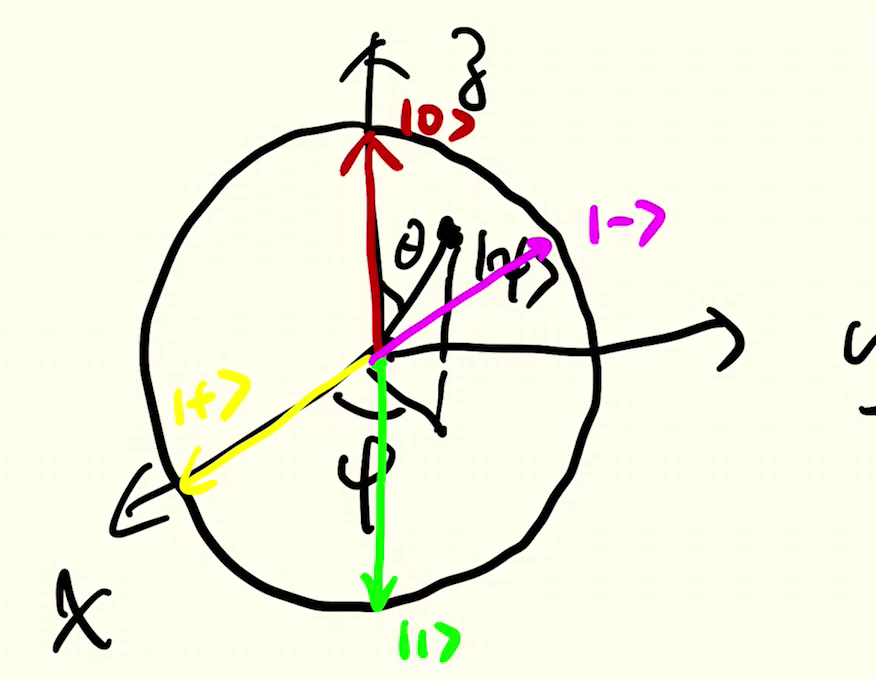 z
|0>
|->
θ
|ψ>
|+>
φ
x
|1>